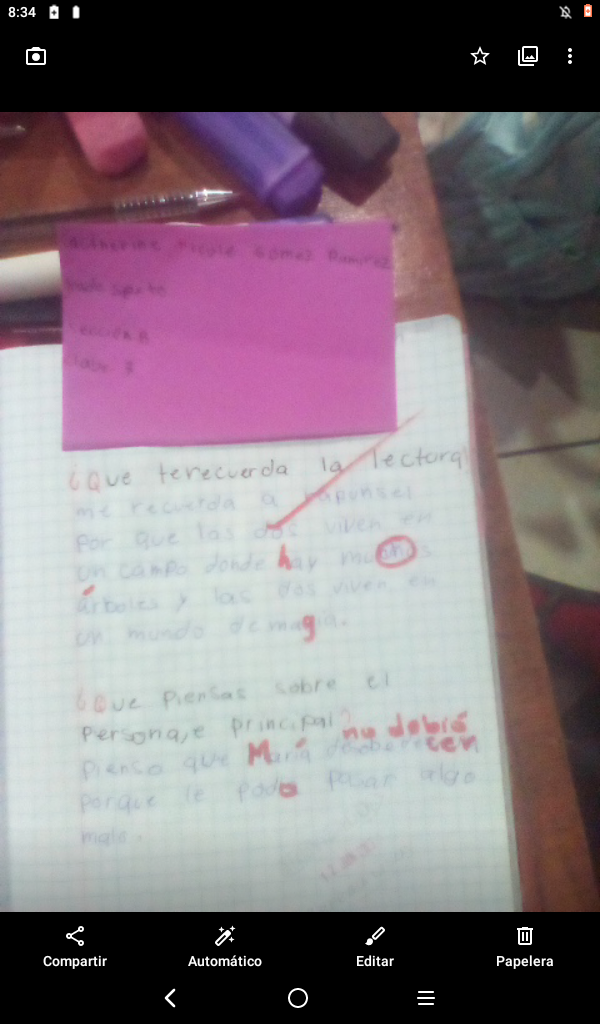 8:34
Nicole Gomez Ramirez
Sección B
Clave 7
¿Que terecuerda la lectura
me recuerda a rapunsel
por que las dos viven en
un campo donde hay muchos
árboles y las dos viven en
un mundo de magia.
¿Que piensas sobre el
personaje principal?
no debió
pienso que María desobedecer
porque le podo pasar algo
malo.
Compartir
Automático
Editar
Papelera